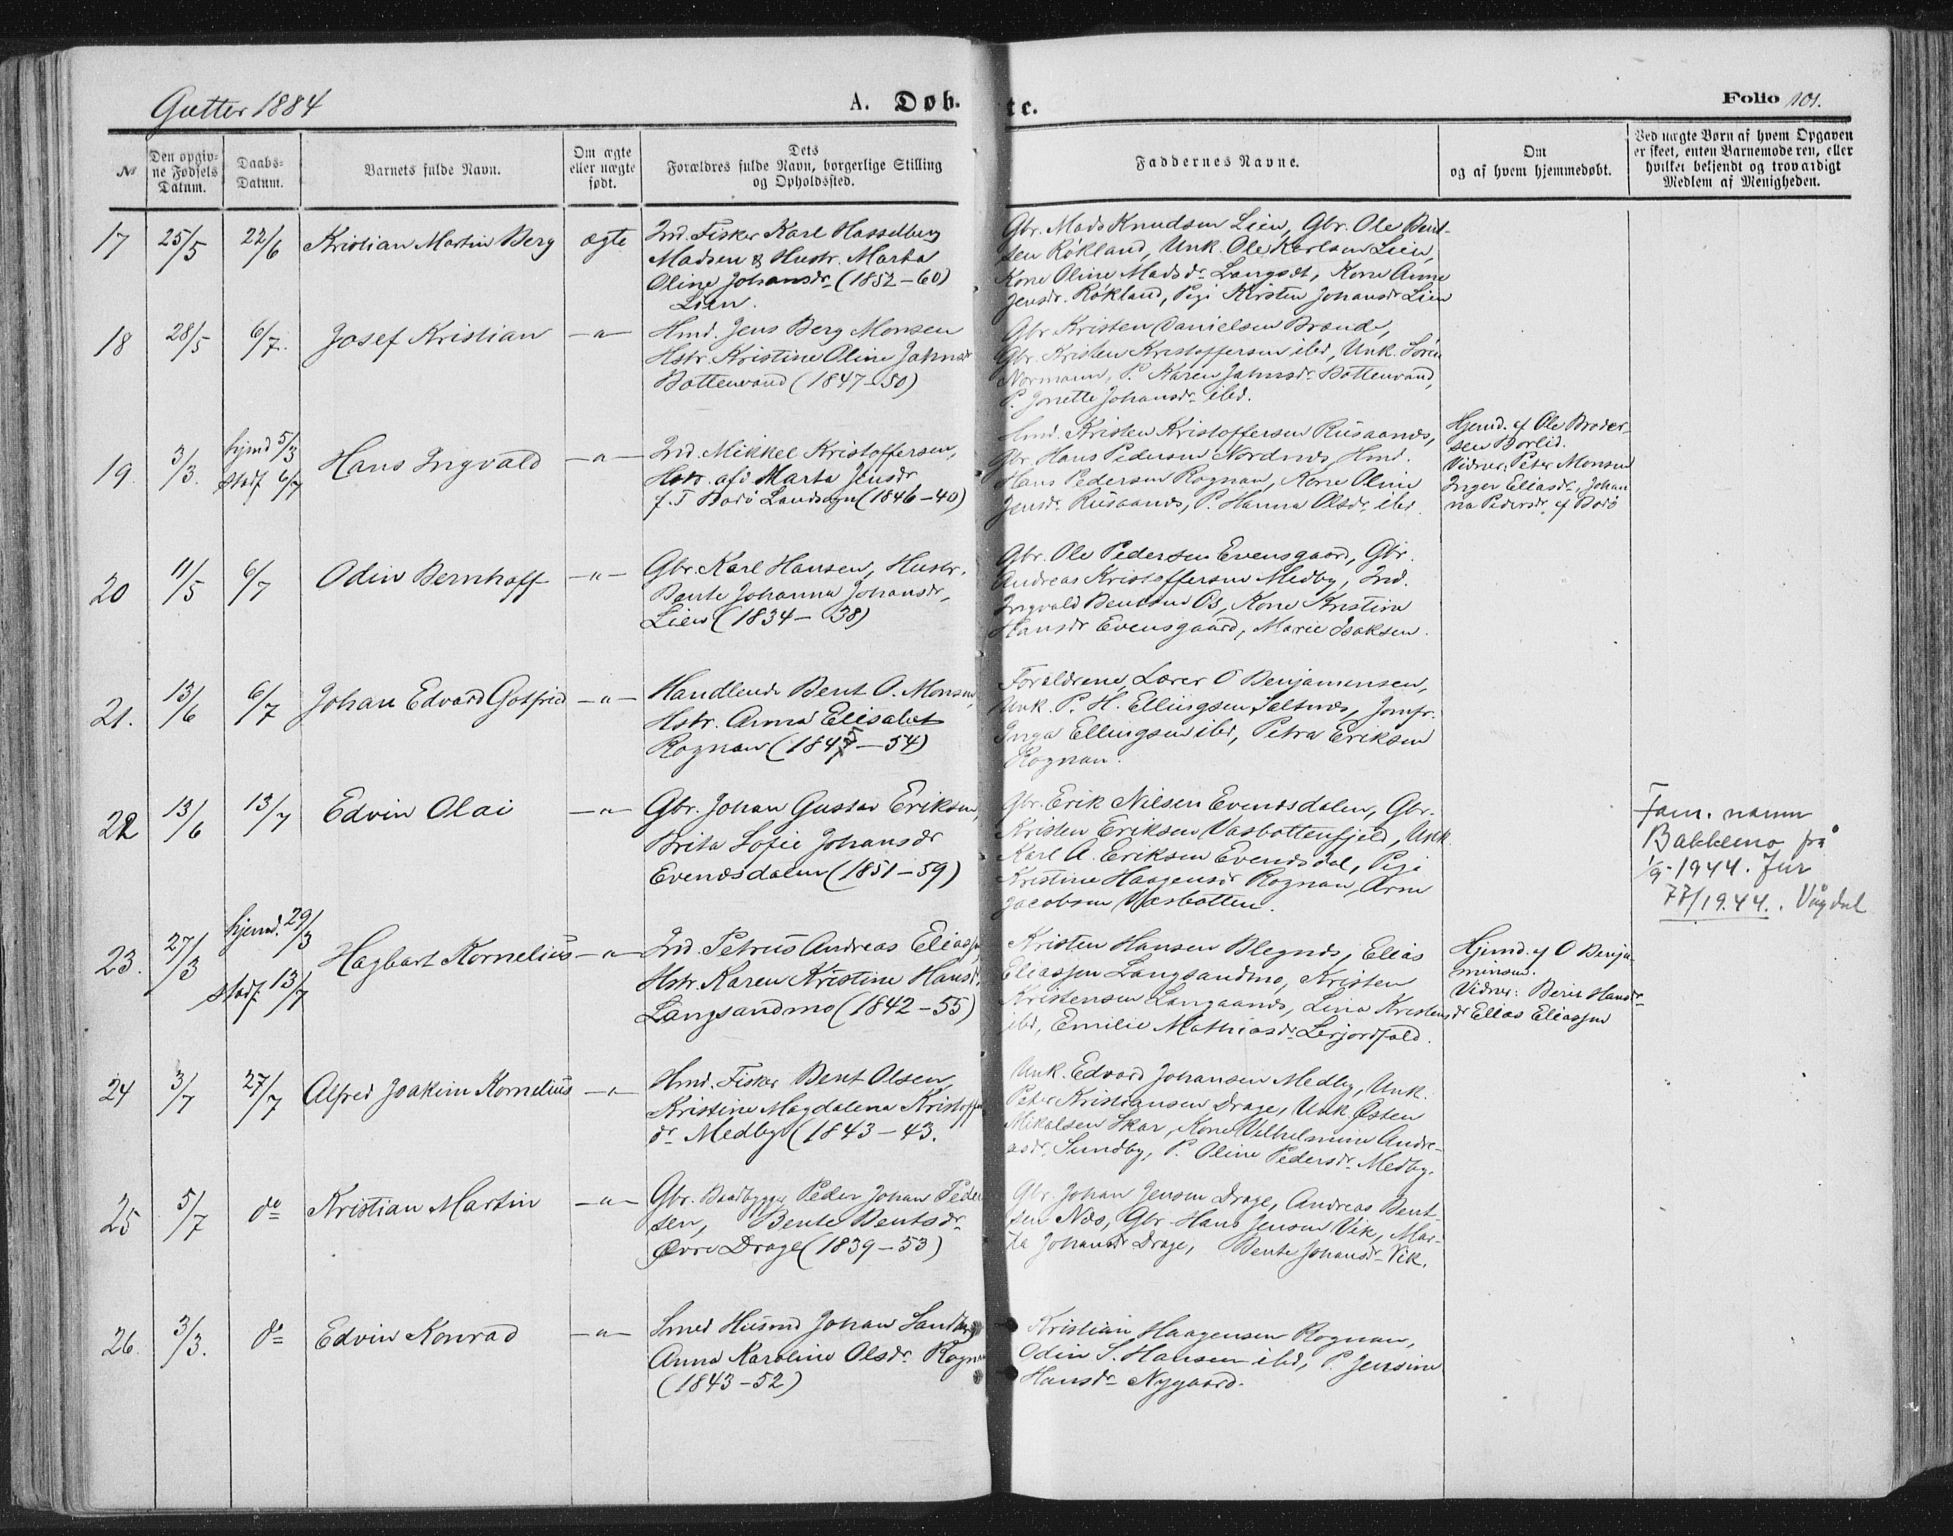 Gutter 1884
A. Døb-
te.
Folio 101.
No
Den opgiv-
ne Fødsels
Datum.
Daabs-
Datum.
Barnets fulde Navn.
Om ægte
eller uægte
født.
Dets
Forældres fulde Navn, borgerlige Stilling
og Opholdssted.
Faddernes Navne.
Om
og af hvem hjemmedøbt.
Ved uægte Børn af hvem Opgaven
er skeet, enten Barnemoderen, eller
hvilket bekjendt og troværdigt
Medlem af Menigheden.
17 25/5 22/6 Kristian Martin Berg ægte
Ind. Fisker Karl Hasselberg
Madsen & Hustr. Marta
Oline Johansdr (1852-60)
Lien.
Gbr. Mads Knudsen Lien, Gbr. Ole Bent-
sen Røkland, Unk. Ole Karlsen Lien,
Kone Oline Madsdr Langset, Kone Anne
Jensdr. Røkland, Pigi Kirsten Johansdr Lien
18 28/5 6/7. Josef Kristian -"-
Hmd. Jens Berg Monsen
Hstr. Kristine Oline Jahnsdr
Bottenvand (1847-50)
Gbr Kristen Danielsen Brænde,
Gbr. Kristen Kristoffersen ibd, Unk. Søren
Normann, P. Karen Jahnsdr Bottenvand,
P. Jonette Johansdr ibd.
19. 3/3. hjmd 5/3
stadf. 6/7
Hans Ingvald -"-
Ind. Mikkel Kristoffersen,
Hstr. afd Marta Jensdr
f. T Bodø Landsogn (1846-40)
Hmd. Kristen Kristoffersen Rusaanes,
Gbr. Hans Pedersen Nordnes, Hmd.
Hans Pedersen Rognan, Kone Oline
Jensdr Rusaanes, P. Hanna Olsdr ibd.
Hjemd. af Ole Broder-
sen Borlid.
Vidner: Peter Monsen
Inger Eliasdr, Johan
na Pedersdr af Bodø
20 11/5 6/7 Odin Bernhoff -"-
Gbr. Karl Hansen, Hustr.
Bente Johanna Johansdr,
Lien (1834-38)
Gbr. Ole Pedersen Evensgaard, Gbr.
Andreas Kristoffersen Medby, Ind.
Ingvald Bentsen Os, Kone Kristine
Hansdr Evensgaard, Marie Isaksen.
21. 13/6 6/7 Johan Edvard Gotfried -"-
Handlende Bent O. Monsen,
Hstr. Anna Elisabet
Rognan (1845-54)
Forældrene, Lærer O Benjaminsen,
Unk. P. H. Ellingsen Saltnes, Jomfr.
Inga Ellingsen ibd, Petra Eriksen
Rognan.
22 13/6 13/7 Edvin Olai -"-
Gbr. Johan Gustav Eriksen,
Brita Sofie Johansdr
Evenesdalen (1851-59)
Gbr. Erik Nilsen Evenesdalen, Gbr.
Kristen Eriksen Vasbottenfjeld, Unk
Karl A. Eriksen Evensdal, Pigi
Kristine Haagensdr Rognan, Arne
Jacobsen Vasbotten.
Fam. navnn
Bakkemo frå
1/9-1944. Jur
77/1944. Vågdal
23. 27/3 hjemd. 29/3
stadf. 13/7
Hagbart Kornelius -"-
Ind Petrus Andreas Eliassen
Hstr. Karen Kristine Hansdr.
Langsandmo (1842-55)
Kristen Hansen Blegnes, Elias
Eliassen Langsandmo, Kristen
Kristensen Langaanes, Lina Kristensdr
ibd, Emilie Mathiasdr Lerjordfald.
Hjemd. af O Benja-
minsen.
Vidner: Berit Hansdr
Elias Eliassen
24 3/7 27/7 Alfred Joakim Kornelius -"-
Hmd. Fisker Bent Olsen,
Kristine Magdalena Kristoffer
dr Medby (1843-43.
Unk. Edvard Johansen Medby, Unk.
Peter Kristiansen Drage, Unk. Østen
Mikalsen Skar, Kone Vilhelmine Andre-
asdr. Sundby, P. Oline Pedersdr Medby.
25 5/7 do Kristian Martin -"-
Gbr. Baadbygger Peder Johan Peder
sen, Bente Bentsdr
Øvre Drage (1839-53)
Gbr. Johan Jensen Drage, Andreas Bent-
sen Næs, Gbr Hans Jensen Vik, Mar-
ta Johansdr Drage, Bente Johansdr Vik.
26. 3/3. do Edvin Konrad -"-
Smed Husmd Johan Sandberg
Anna Karoline Olsdr. Rognan
(1843-52)
Kristian Haagensen Rognan,
Odin S. Hansen ibd, P. Jensine
Hansdr Nygaard.